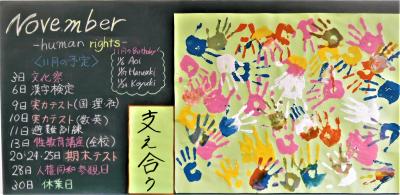 November
-human rights-
<11月の予定>
3日 文化祭
6日 漢字検定
9日 実力テスト(国理社)
10日 実力テスト(数英)
11日 避難訓練
13日 性教育講座(全校)
20・24・25日 期末テスト
28日 人権同和参観日
30日 休業日
11月のBirthday
Aoi
Haruaki
Koyuki
支え合う